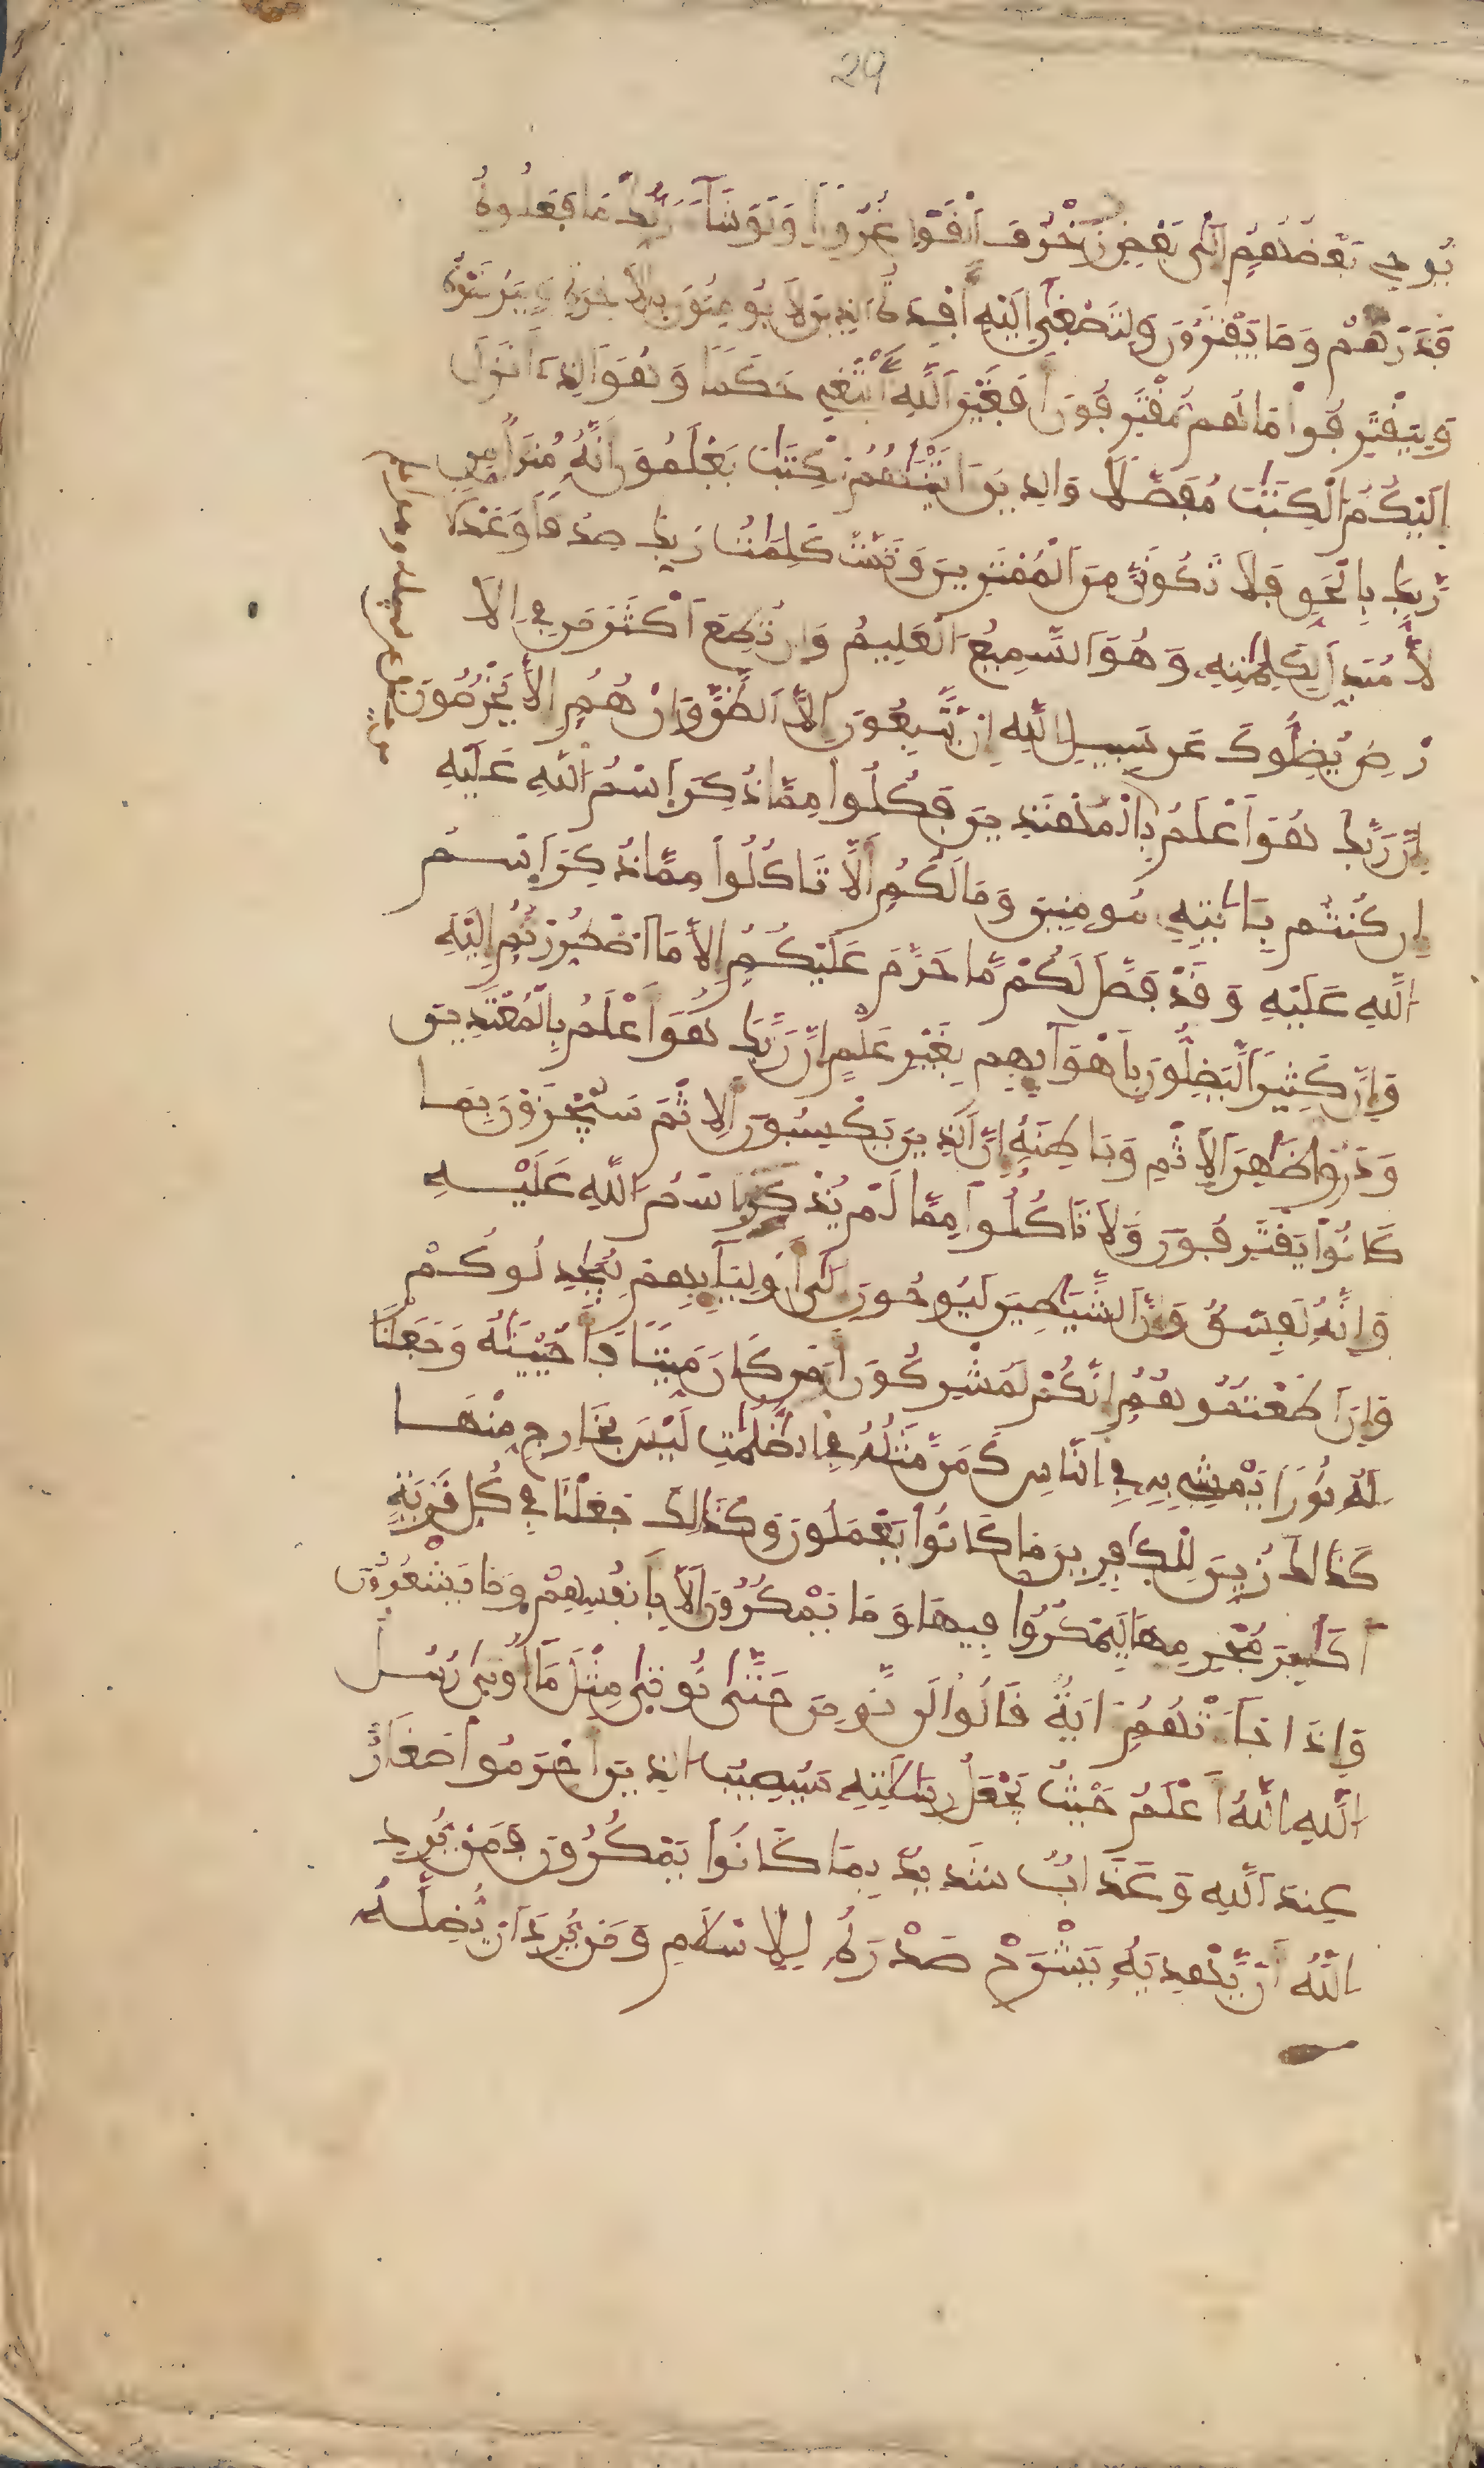 29
يُوحِي بَعْضُهُمُ إِلَى بَعْضٍ زُخْرُفَ الْقَوْلِ غُرُورًا وَلَوْ شَآءَ رَبُّكَ مَا فَعَلُوهُ
فَذَرْهُمْ وَمَا يَفْتَرُونَ وَلِتَصْغَى إِلَيْهِ أَفْـِٕدَةُ الذِينَ لَا يُومِنُونَ بِالْأَخِرَةِ وَلِيَرْضَوْهُ
وَلِيَقْتَرِفُواْ مَا هُم مُّقْتَرِفُونَ أَفَغَيْرَ اللَّهِ أَبْتَغِي حَكَمًا وَهُوَ الذِي أَنزَلَ
إِلَيْكُمُ الْكِتَٰبَ مُفَصَّلًا وَالذِينَ ءَاتَيْنَٰهُمُ الْكِتَٰبَ يَعْلَمُونَ أَنَّهُ مُنزَلٌ مِّن
رَّبِّكَ بِالْحَقِّ فَلَا تَكُونَنَّ مِنَ الْمُمْتَرِينَ وَتَمَّتْ كَلِمَٰتُ رَبِّكَ صِدْقًا وَعَدْلًا
لَّا مُبَدِّلَ لِكَلِمَٰتِهِ وَهُوَ السَّمِيعُ الْعَلِيمُ وَإِن تُطِعَ اَكْثَرَ مَن فِي الَا
رْضِ يُضِلُّوكَ عَن سَبِيلِ اللَّهِ إِنْ يَّتَّبِعُونَ إِلَّا الظَّنَّ وَإِنْ هُمُ إِلَّا يَخْرُصُونَ
إِنَّ رَبَّكَ هُوَ أَعْلَمُ بِالْمُهْتَدِينَ فَكُلُواْ مِمَّا ذُكِرَ اسْمُ اللَّهِ عَلَيْهِ
إِن كُنتُم بِـَٔايَٰتِهِ مُومِنِينَ وَمَا لَكُمُ أَلَّا تَاكُلُواْ مِمَّا ذُكِرَ اسْمُ
اللَّهِ عَلَيْهِ وَقَدْ فَصَّلَ لَكُمْ مَّا حَرَّمَ عَلَيْكُمُ إِلَّا مَا اضْطُرِرْتُمُ إِلَيْهِ
وَإِنَّ كَثِيرًا لَّيَضِلُّونَ بِأَهْوَآئِهِم بِغَيْرِ عِلْمٍ إِنَّ رَبَّكَ هُوَ أَعْلَمُ بِالْمُعْتَدِينَ
وَذَرُواْ ظَٰهِرَ الْإِثْمِ وَبَاطِنَهُ إِنَّ الذِينَ يَكْسِبُونَ الْإِثْمَ سَيُجْزَوْنَ بِمَا
كَانُواْ يَقْتَرِفُونَ وَلَا تَاكُلُواْ مِمَّا لَمْ يُذْكَرِ اسْمُ اللَّهِ عَلَيْهِ
وَإِنَّهُ لَفِسْقٌ وَإِنَّ الشَّيَٰطِينَ لَيُوحُونَ إِلَى أَوْلِيَآئِهِمْ لِيُجَٰدِلُوكُمْ
وَإِنَ اَطَعْتُمُوهُمُ إِنَّكُمْ لَمُشْرِكُونَ أَوَمَن كَانَ مَيِّتًا فَأَحْيَيْنَٰهُ وَجَعَلْنَا
لَهُ نُورًا يَمْشِي بِهِ فِي النَّاسِ كَمَن مَّثَلُهُ فِي الظُّلُمَٰتِ لَيْسَ بِخَارِجٍ مِّنْهَا
كَذَٰلِكَ زُيِّنَ لِلْكَٰفِرِينَ مَا كَانُواْ يَعْمَلُونَ وَكَذَٰلِكَ جَعَلْنَا فِي كُلِّ قَرْيَةٍ
أَكَٰبِرَ مُجْرِمِيهَا لِيَمْكُرُواْ فِيهَا وَمَا يَمْكُرُونَ إِلَّا بِأَنفُسِهِمْ وَمَا يَشْعُرُونَ
وَإِذَا جَآءَتْهُمُ ءَايَةٌ قَالُواْ لَن نُّومِنَ حَتَّىٰ نُوتَىٰ مِثْلَ مَآ أُوتِيَ رُسُلُ
اللَّهِ اللَّهُ أَعْلَمُ حَيْثُ يَجْعَلُ رِسَالَٰتِهِ سَيُصِيبُ الذِينَ أَجْرَمُواْ صَغَارٌ
عِندَ اللَّهِ وَعَذَابٌ شَدِيدٌ بِمَا كَانُواْ يَمْكُرُونَ فَمَنْ يُّرِدِ
اللَّهُ أَنْ يَّهْدِيَهُ يَشْرَحْ صَدْرَهُ لِلْإِسْلَٰمِ وَمَنْ يُّرِدَ اَنْ يُّضِلَّهُ